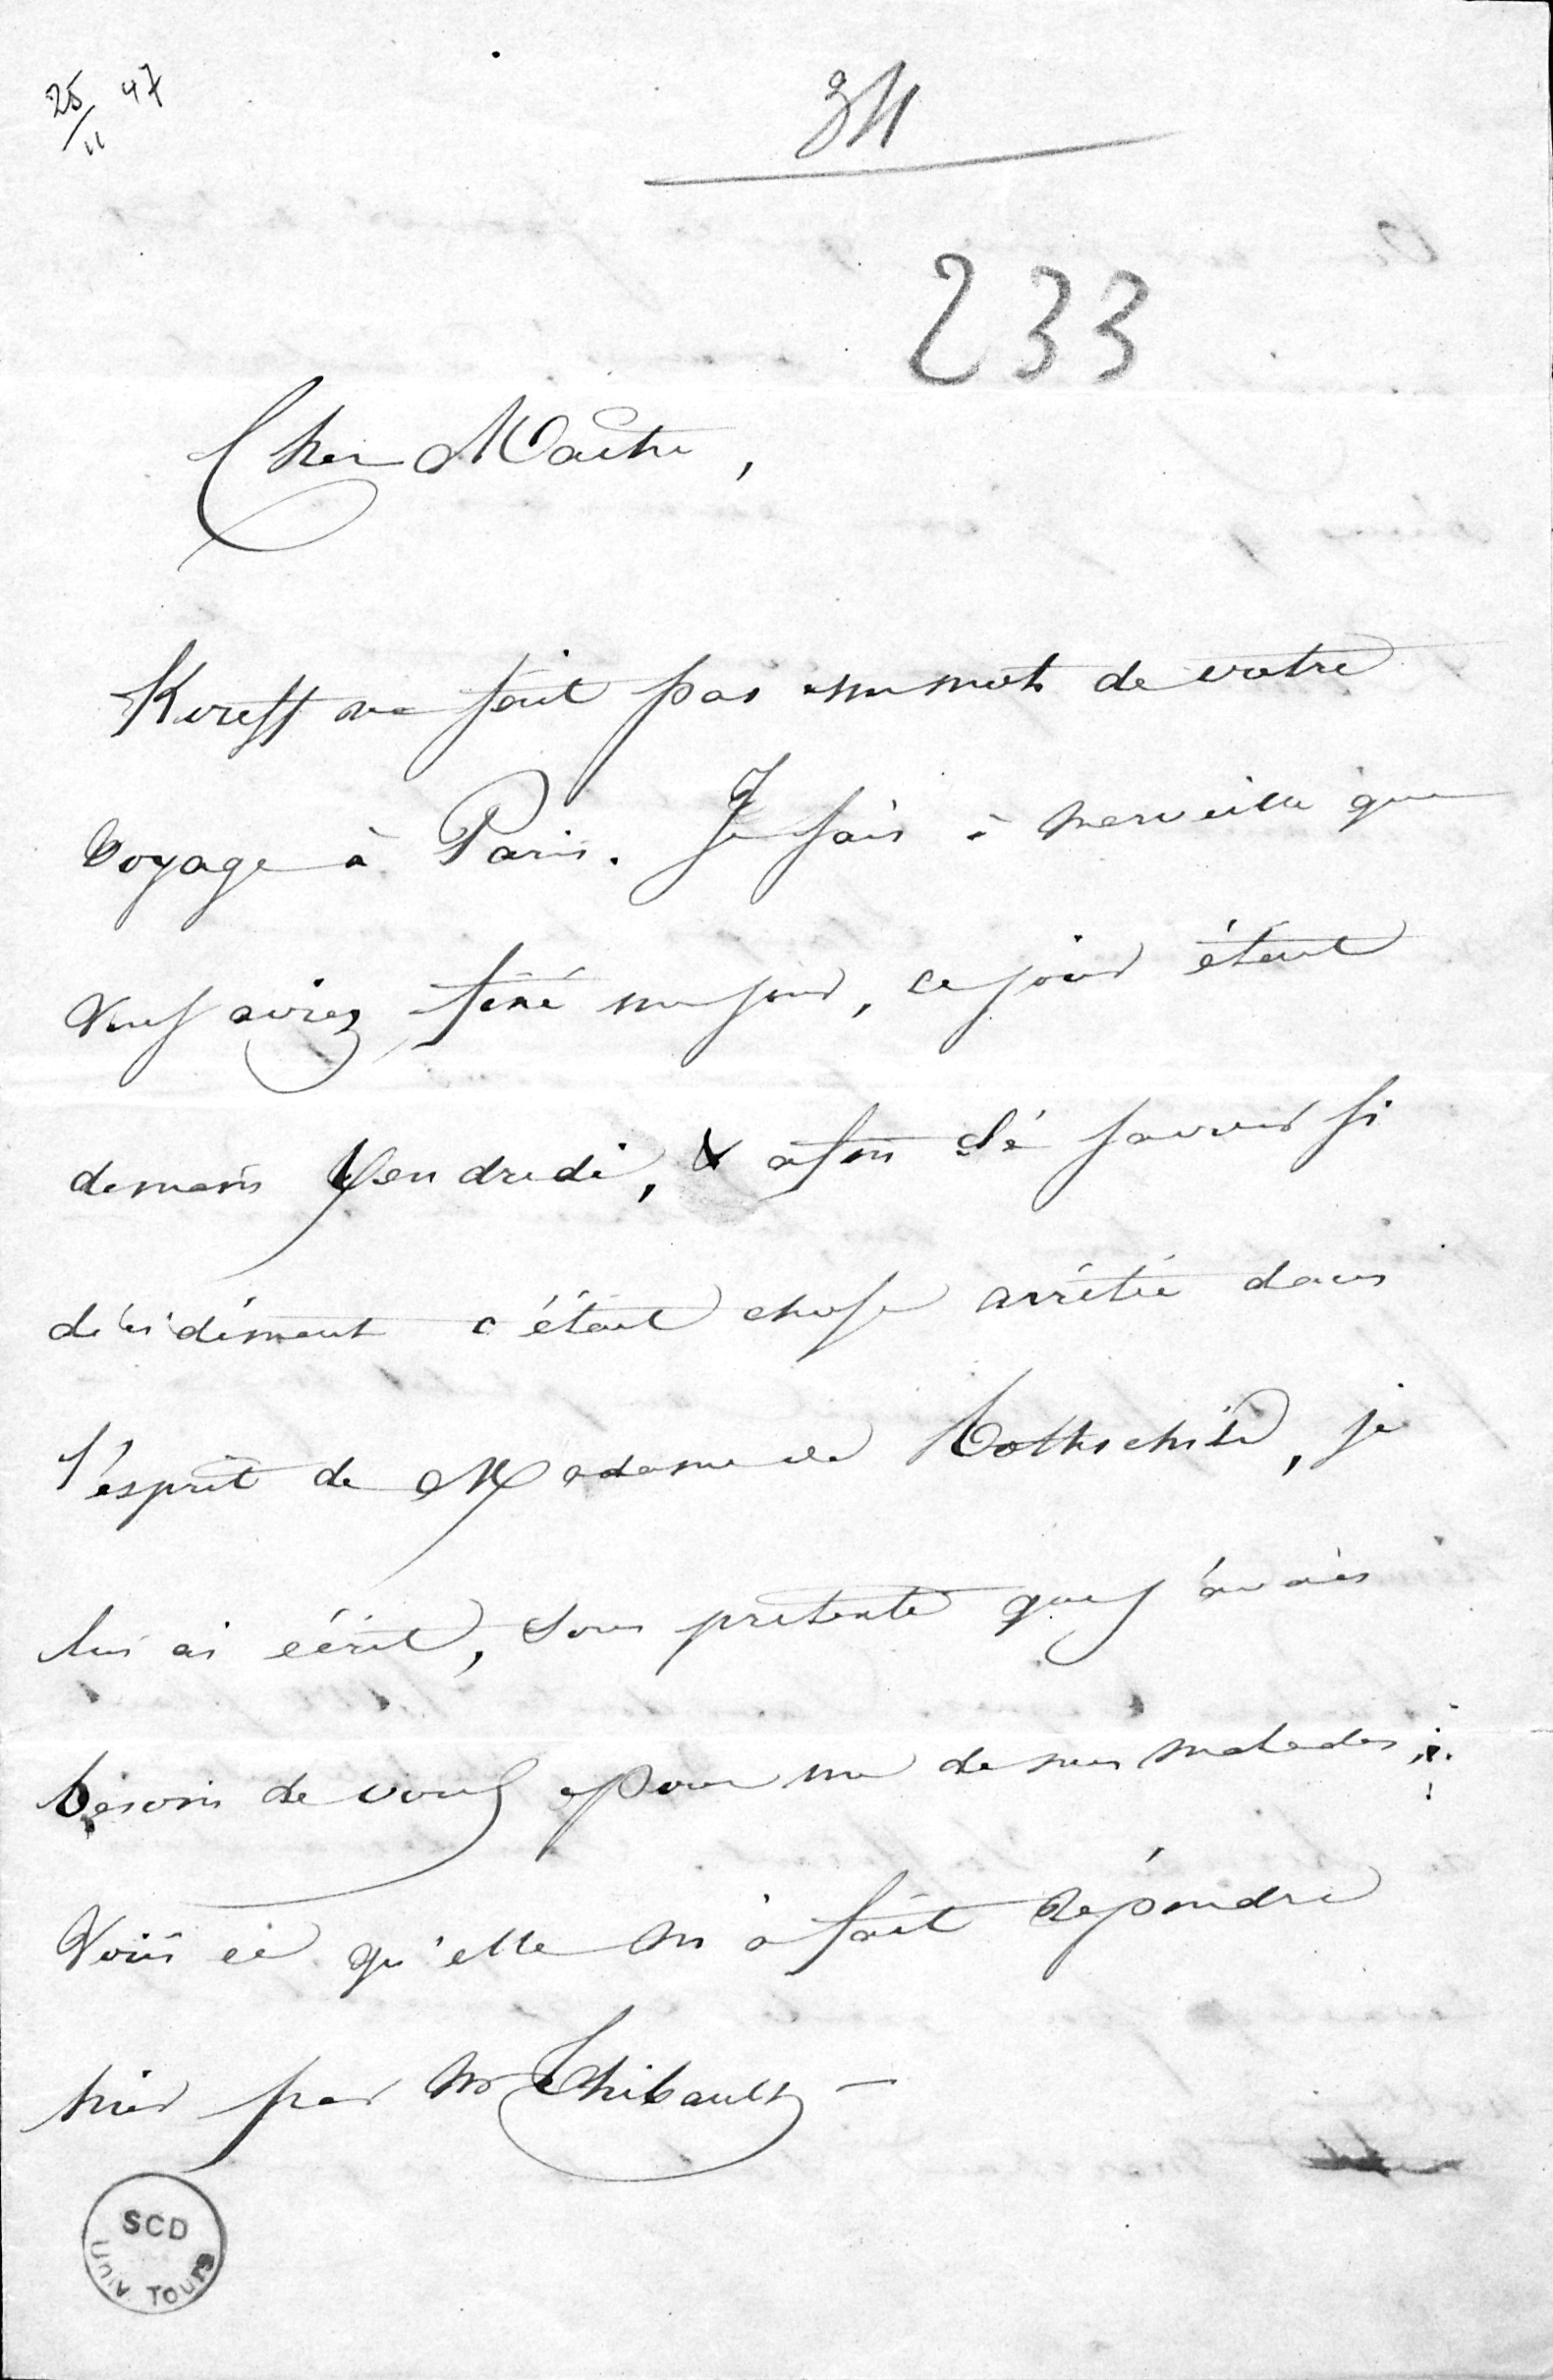 25/11 47
34
233
Cher Maître,
Koreff ne sait pas un mot de votre
voyage à Paris. Je sais à merveille que
vous aviez fixé un jour, ce jour était
demain Vendredi, & afin de savoir si
décidément c'était chose arrêtée dans
l'esprit de Madame de Rothschild, je
lui ai écrit, sous prétexte que j'avais
besoin de vous pour un de mes malades;
Voici ce qu'elle m'a fait répondre
hier par Mr Thibault —
SCD
UNIV. TOURS